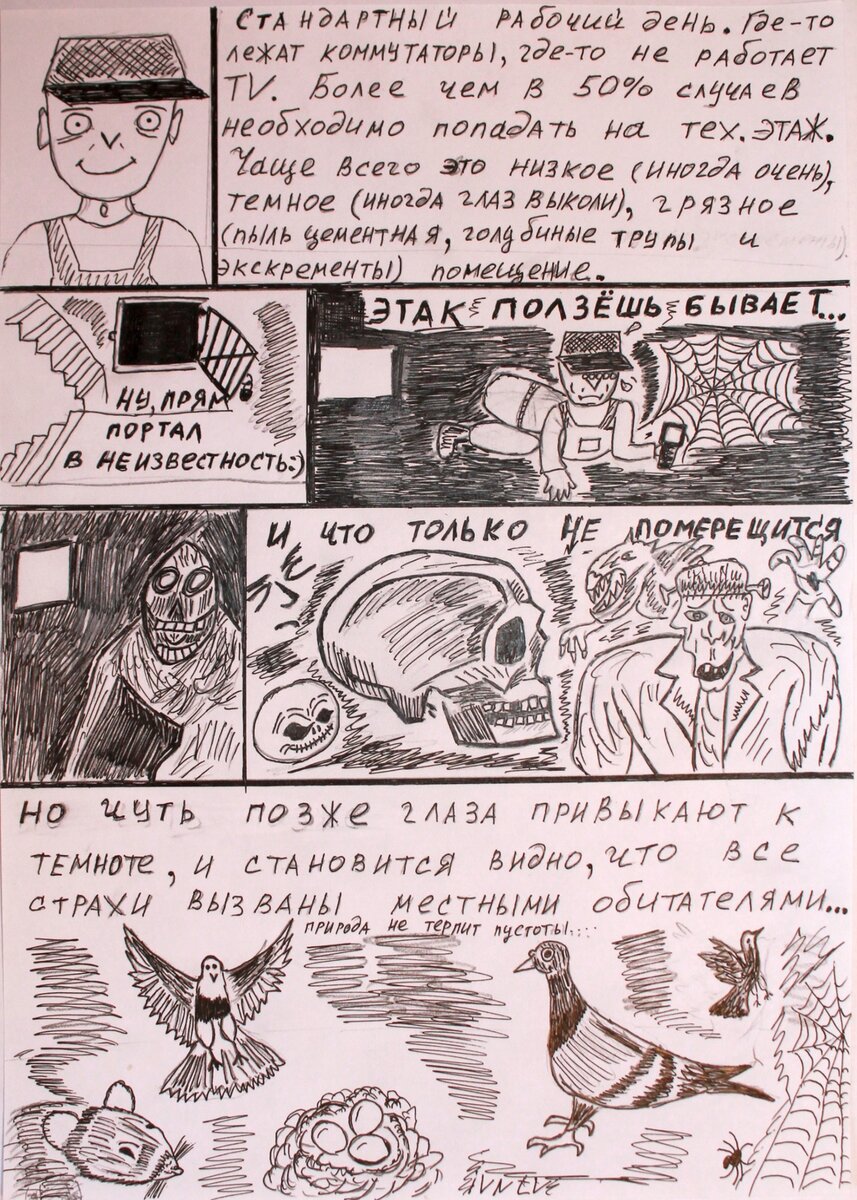 Стандартный рабочий день. Где-то
лежат коммутаторы, где-то не работает
TV. Более чем в 50% случаев
необходимо попадать на тех. этаж.
Чаще всего это низкое (иногда очень),
темное (иногда глаз выколи), грязное
(пыль цементная, голубиные трупы и
экскременты) помещение.
НУ, ПРЯМ
ПОРТАЛ
В НЕИЗВЕСТНОСТЬ:)
ЭТАК ПОЛЗЁШЬ БЫВАЕТ...
И ЧТО ТОЛЬКО НЕ ПОМЕРЕЩИТСЯ
НО ЧУТЬ ПОЗЖЕ ГЛАЗА ПРИВЫКАЮТ К
ТЕМНОТЕ, И СТАНОВИТСЯ ВИДНО, ЧТО ВСЕ
СТРАХИ ВЫЗВАНЫ МЕСТНЫМИ ОБИТАТЕЛЯМИ...
ПРИРОДА НЕ ТЕРПИТ ПУСТОТЫ....